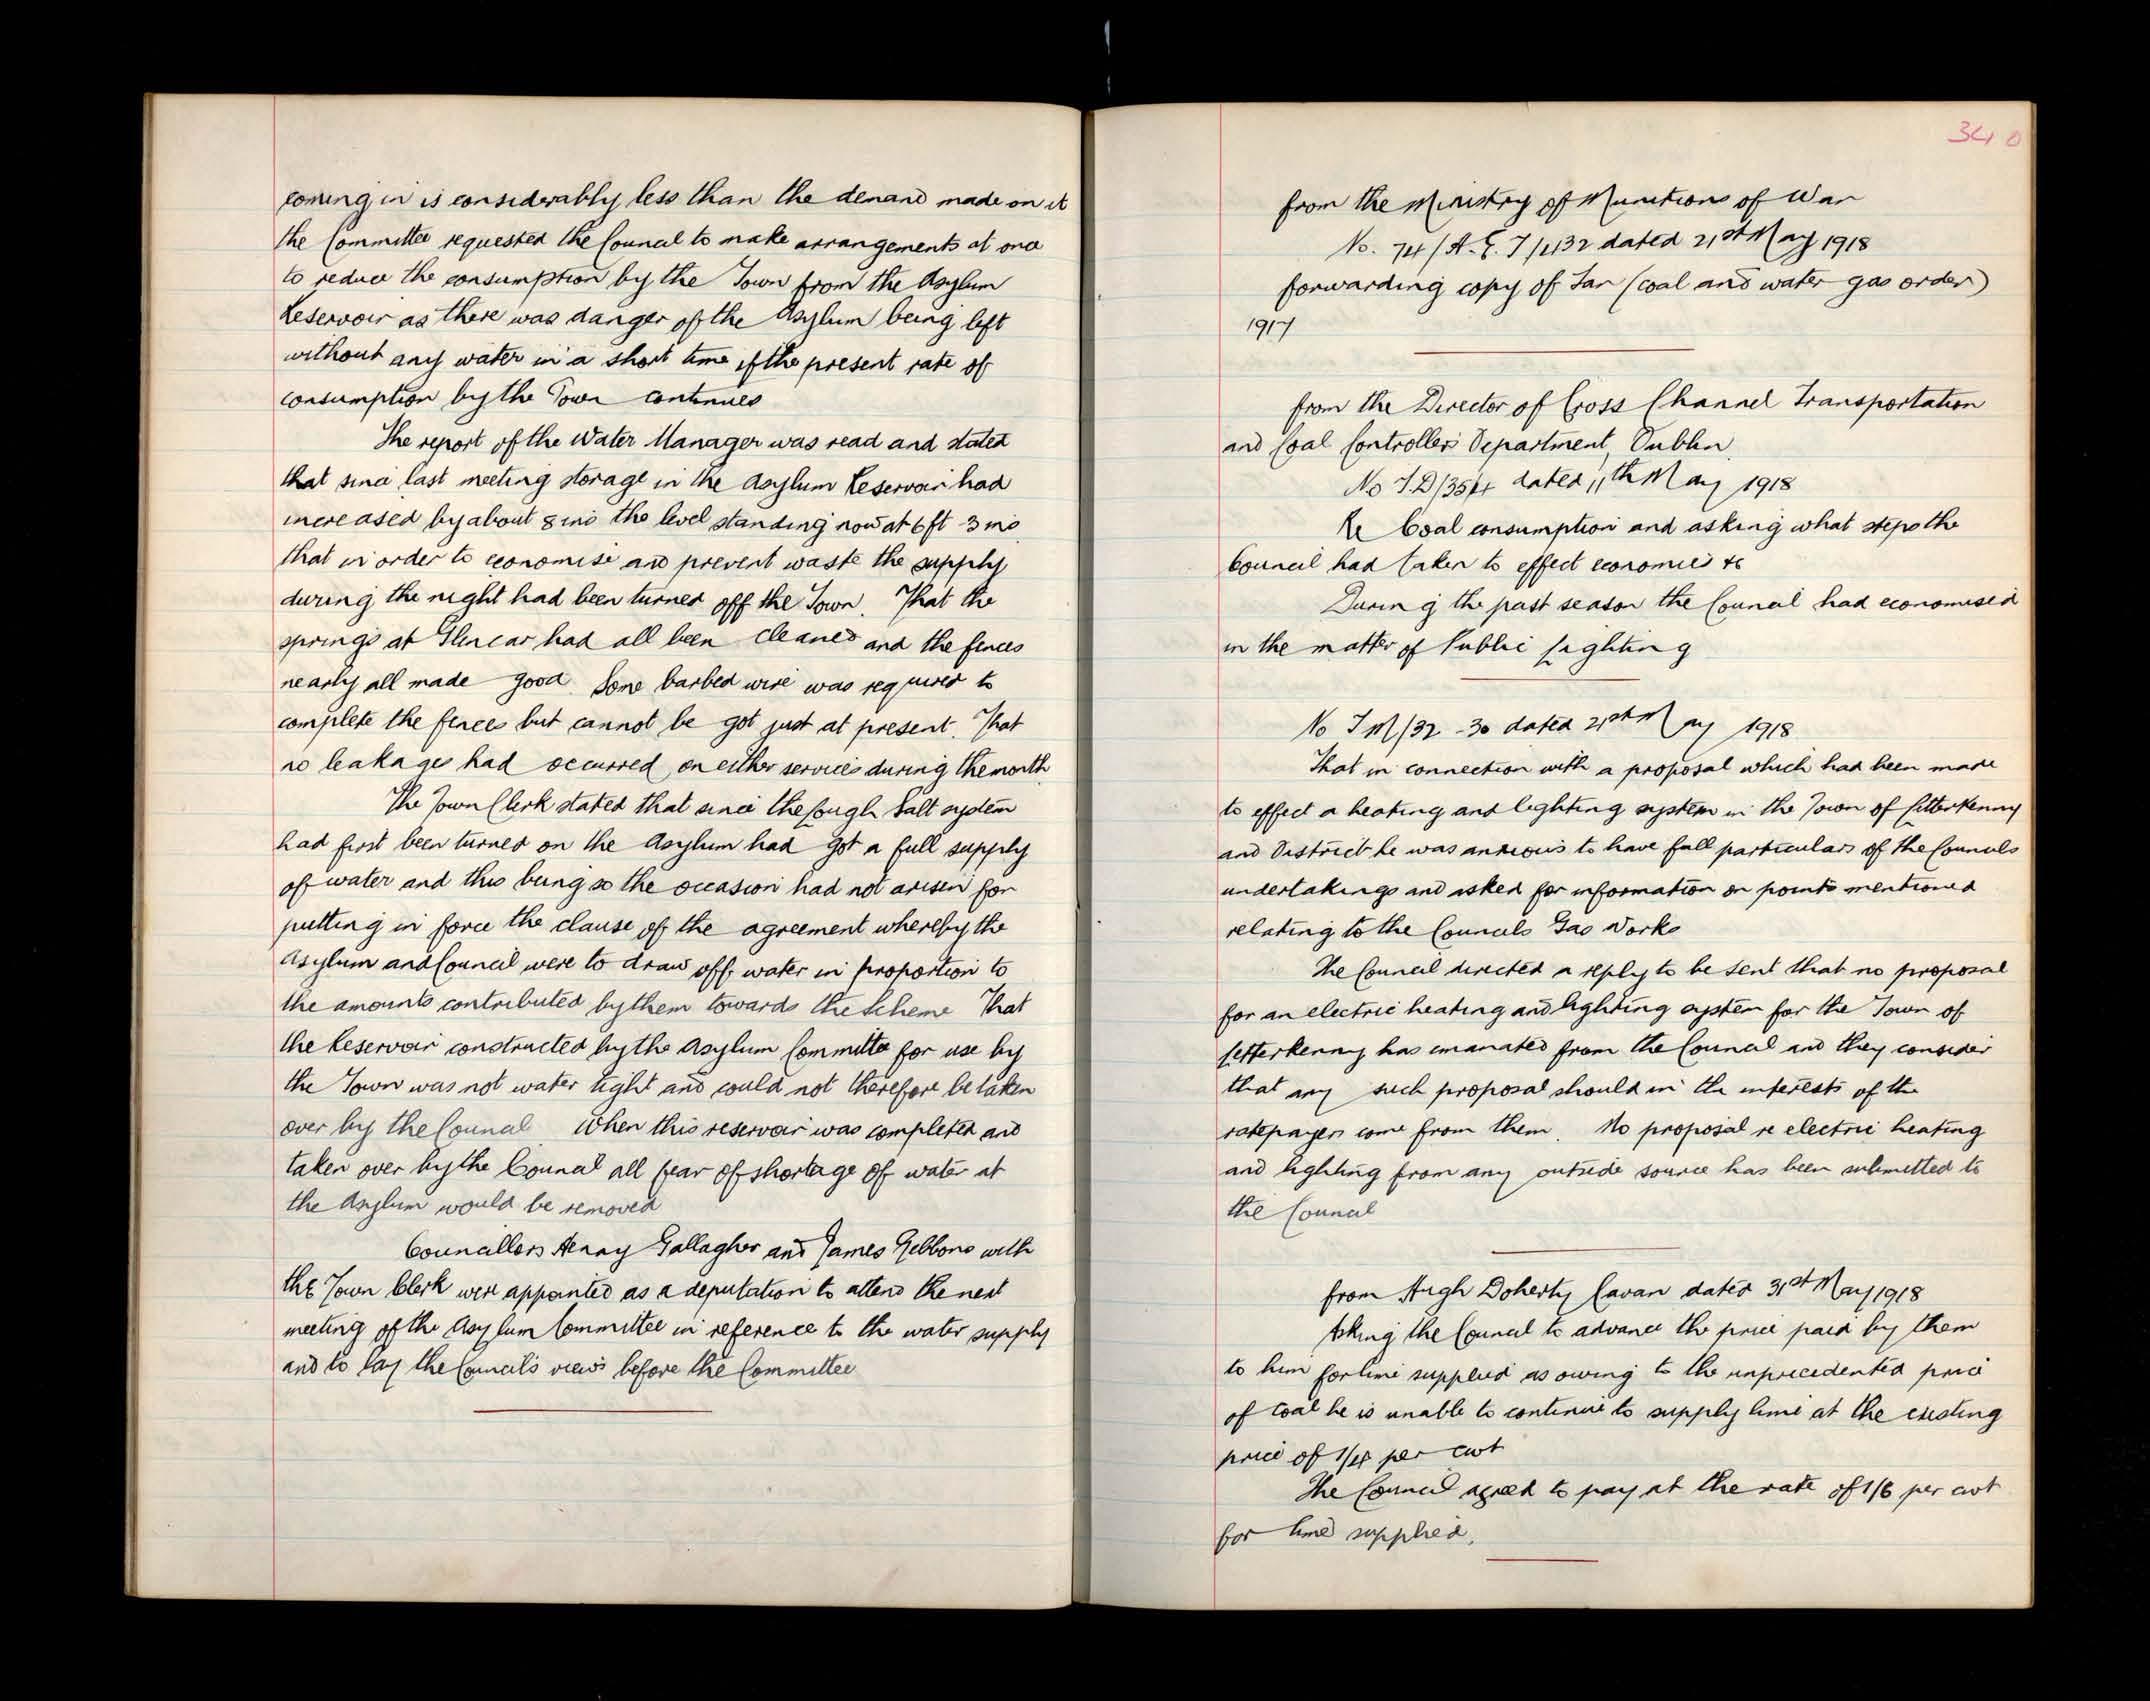 coming in is considerably less than the demand made on it
the Committee requested the Council to make arrangements at once
to reduce the consumption by the Town from the Asylum
Reservoir as there was danger of the Asylum being left
without any water in a short time if the present rate of
consumption by the Town continues
The report of the Water Manager was read and stated
that since last meeting storage in the Asylum Reservoir had
increased by about 8 ins the level standing now at 6 ft - 3 ins
that in order to economise and prevent waste the supply
during the night had been turned off the Town. That the
springs at Glencar had all been cleaned and the fences
nearly all made good. Some barbed wire was required to
complete the fences but cannot be got just at present. That
no leakages had occurred on either services during the month
The Town Clerk stated that since the Lough Salt system
had first been turned on the Asylum had got a full supply
of water and this being so the occasion had not arisen for
putting in force the clause of the agreement whereby the
Asylum and Council were to draw off water in proportion to
the amounts contributed by them towards the Scheme That
the Reservoir constructed by the Asylum Committee for use by
the Town was not water tight and could not therefore be taken
over by the Council When this reservoir was completed and
taken over by the Council all fear of shortage of water at
the Asylum would be removed
Councillors Henry Gallagher and James Gibbons with
the Town Clerk were appointed as a deputation to attend the next
meeting of the Asylum Committee in reference to the water supply
and to lay the Council's views before the Committee
340
from the Ministry of Munitions of War
No. 74/A.E.T/432 dated 21st May 1918
forwarding copy of Tar (coal and water gas order)
1917
from the Director of Cross Channel Transportation
and Coal Controllers Department, Dublin
No T.D/354 dated 11th May 1918
Re Coal consumption and asking what steps the
Council had taken to effect economies &c
During the past season the Council had economised
in the matter of Public Lighting
No T M/32 - 30 dated 21st May 1918
That in connection with a proposal which had been made
to effect a heating and lighting system in the Town of Letterkenny
and District he was anxious to have full particulars of the Councils
undertakings and asked for information on points mentioned
relating to the Councils Gas Works
The Council directed a reply to be sent that no proposal
for an electric heating and lighting system for the Town of
Letterkenny has emanated from the Council and they consider
that any such proposal should in the interests of the
ratepayers come from them. No proposal re electric heating
and lighting from any outside source has been submitted to
the Council
from Hugh Doherty Cavan dated 31st May 1918
Asking the Council to advance the price paid by them
to him for lime supplied as owing to the unprecedented price
of coal he is unable to continue to supply lime at the existing
price of 1/4 per cwt
The Council agreed to pay at the rate of 1/6 per cwt
for lime supplied.